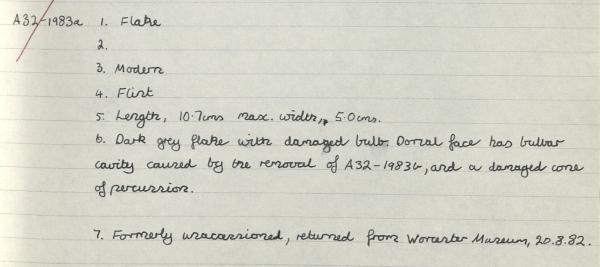 A32-1983a 1. Flake
2.
3. Modern
4. Flint
5. Length, 10.7cms max. width, 5.0cms.
6. Dark grey flake with damaged bulb. Dorsal face has bulbar
cavity caused by the removal of A32-1983b, and a damaged cone
of percussion.
7. Formerly unacassioned, returned from Worcester Museum, 20.8.82.